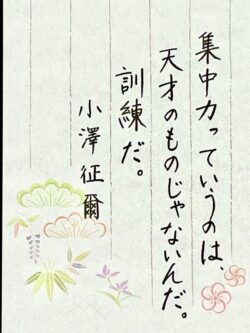 集中力っていうのは、
天才のものじゃないんだ。
訓練だ。
小澤征爾